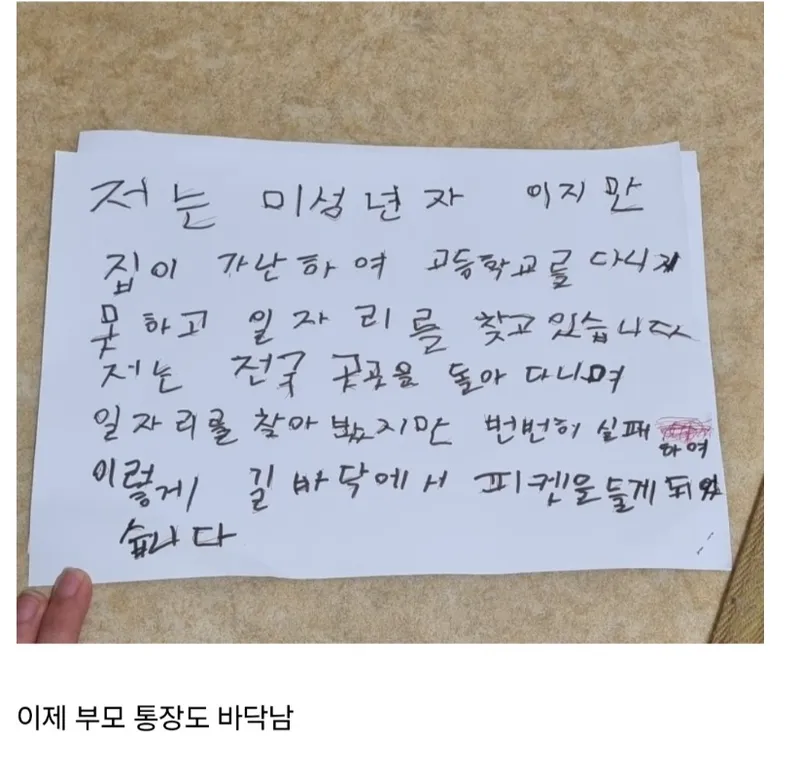 저는 미성년자 이지만
집이 가난하여 고등학교를 다니지
못하고 일자리를 찾고 있습니다
저는 전국 곳곳을 돌아 다니며
일자리를 찾아 봤지만 번번히 실패
하여
이렇게 길바닥에서 피켓을 들게 되었
습니다
이제 부모 통장도 바닥남